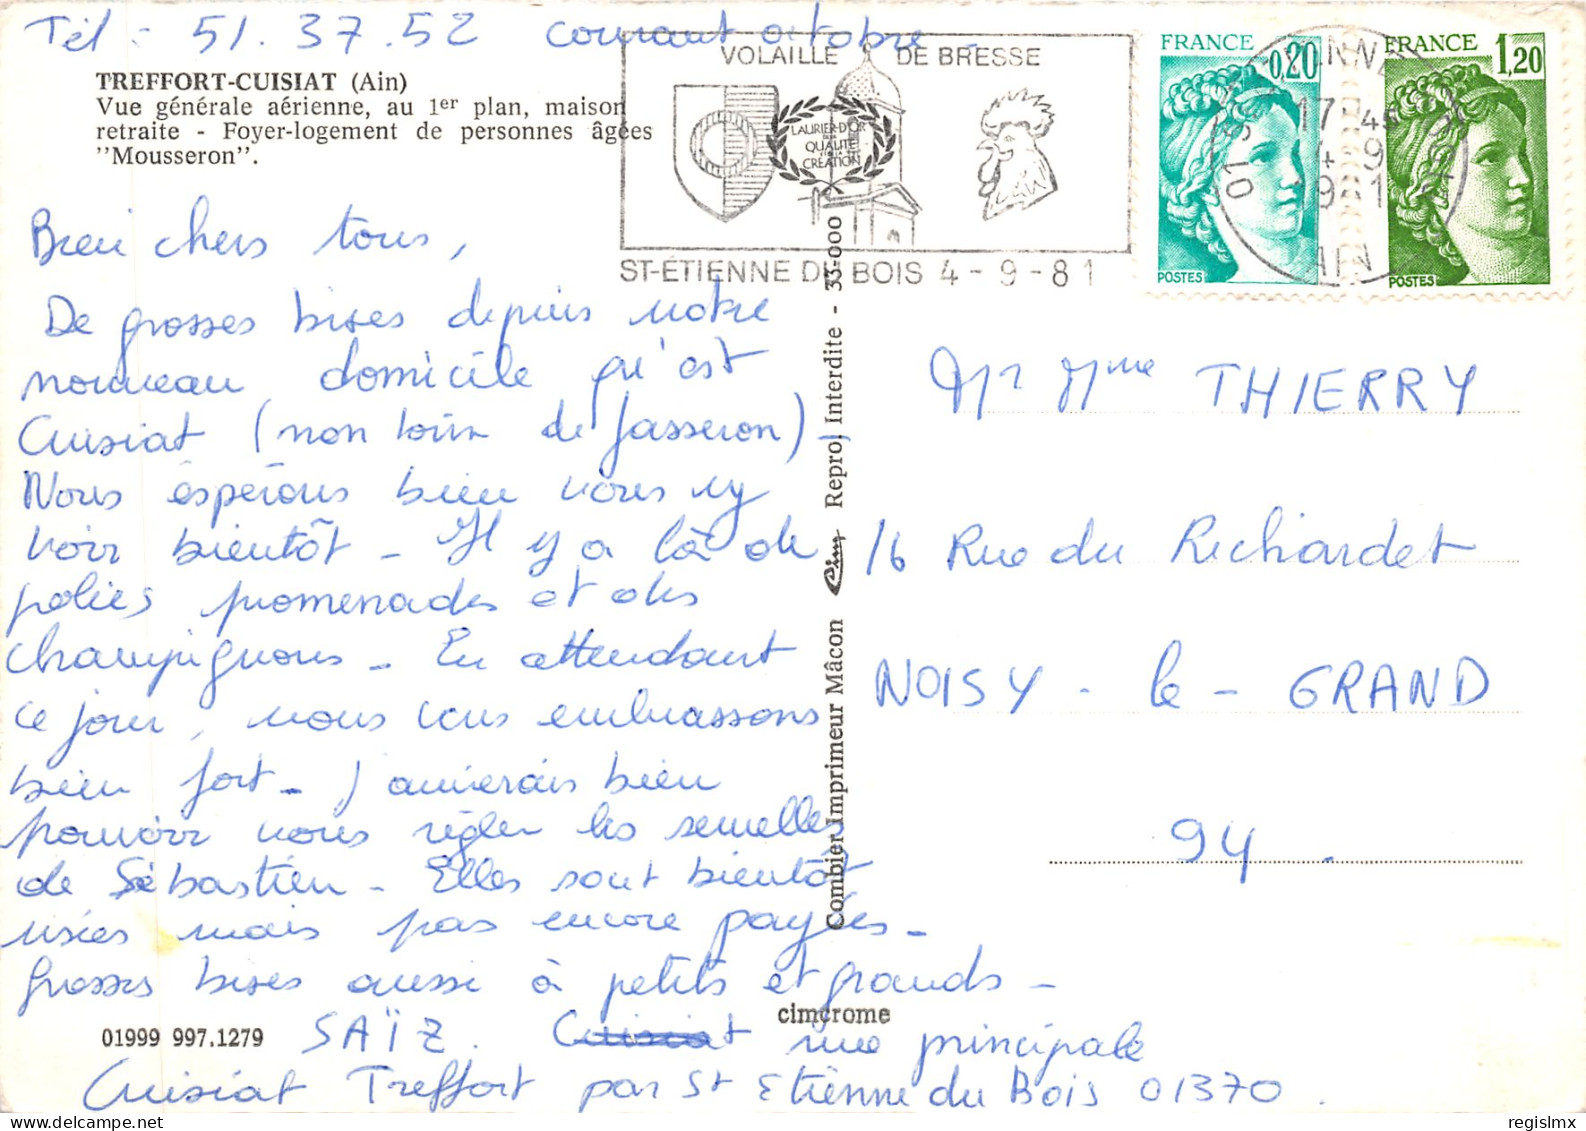 Tél : 51.37.52 courant octobre -
TREFFORT-CUISIAT (Ain)
Vue générale aérienne, au 1er plan, maison
retraite - Foyer-logement de personnes âgées
"Mousseron".
VOLAILLE DE BRESSE
LAURIER D'OR
DE LA
QUALITE
DE LA
CREATION
ST-ÉTIENNE DU BOIS 4-9-81
FRANCE 0,20
POSTES
FRANCE 1,20
POSTES
17 H 45
4 - 9
1981
01
AIN
Bien chers tous,
De grosses bises depuis notre
nouveau domicile qu'est
Cuisiat (non loin de Jasseron) -
Nous espérons bien vous y
voir bientôt - Il y a là de
jolies promenades et des
champignons - En attendant
ce jour, nous vous embrassons
bien fort - J'aimerais bien
pouvoir vous régler les semelles
de Sébastien - Elles sont bientôt
usées mais pas encore payées -
Grosses bises aussi à petits et grands -
SAÏZ. Cuisiat rue principale
Cuisiat Treffort par St Etienne du Bois 01370.
01999 997.1279
cimcrome
Combier Imprimeur Mâcon Cim Repro. Interdite - 33-000
Mr Mme THIERRY
16 Rue du Richardet
NOISY - le - GRAND
94.
regislmx